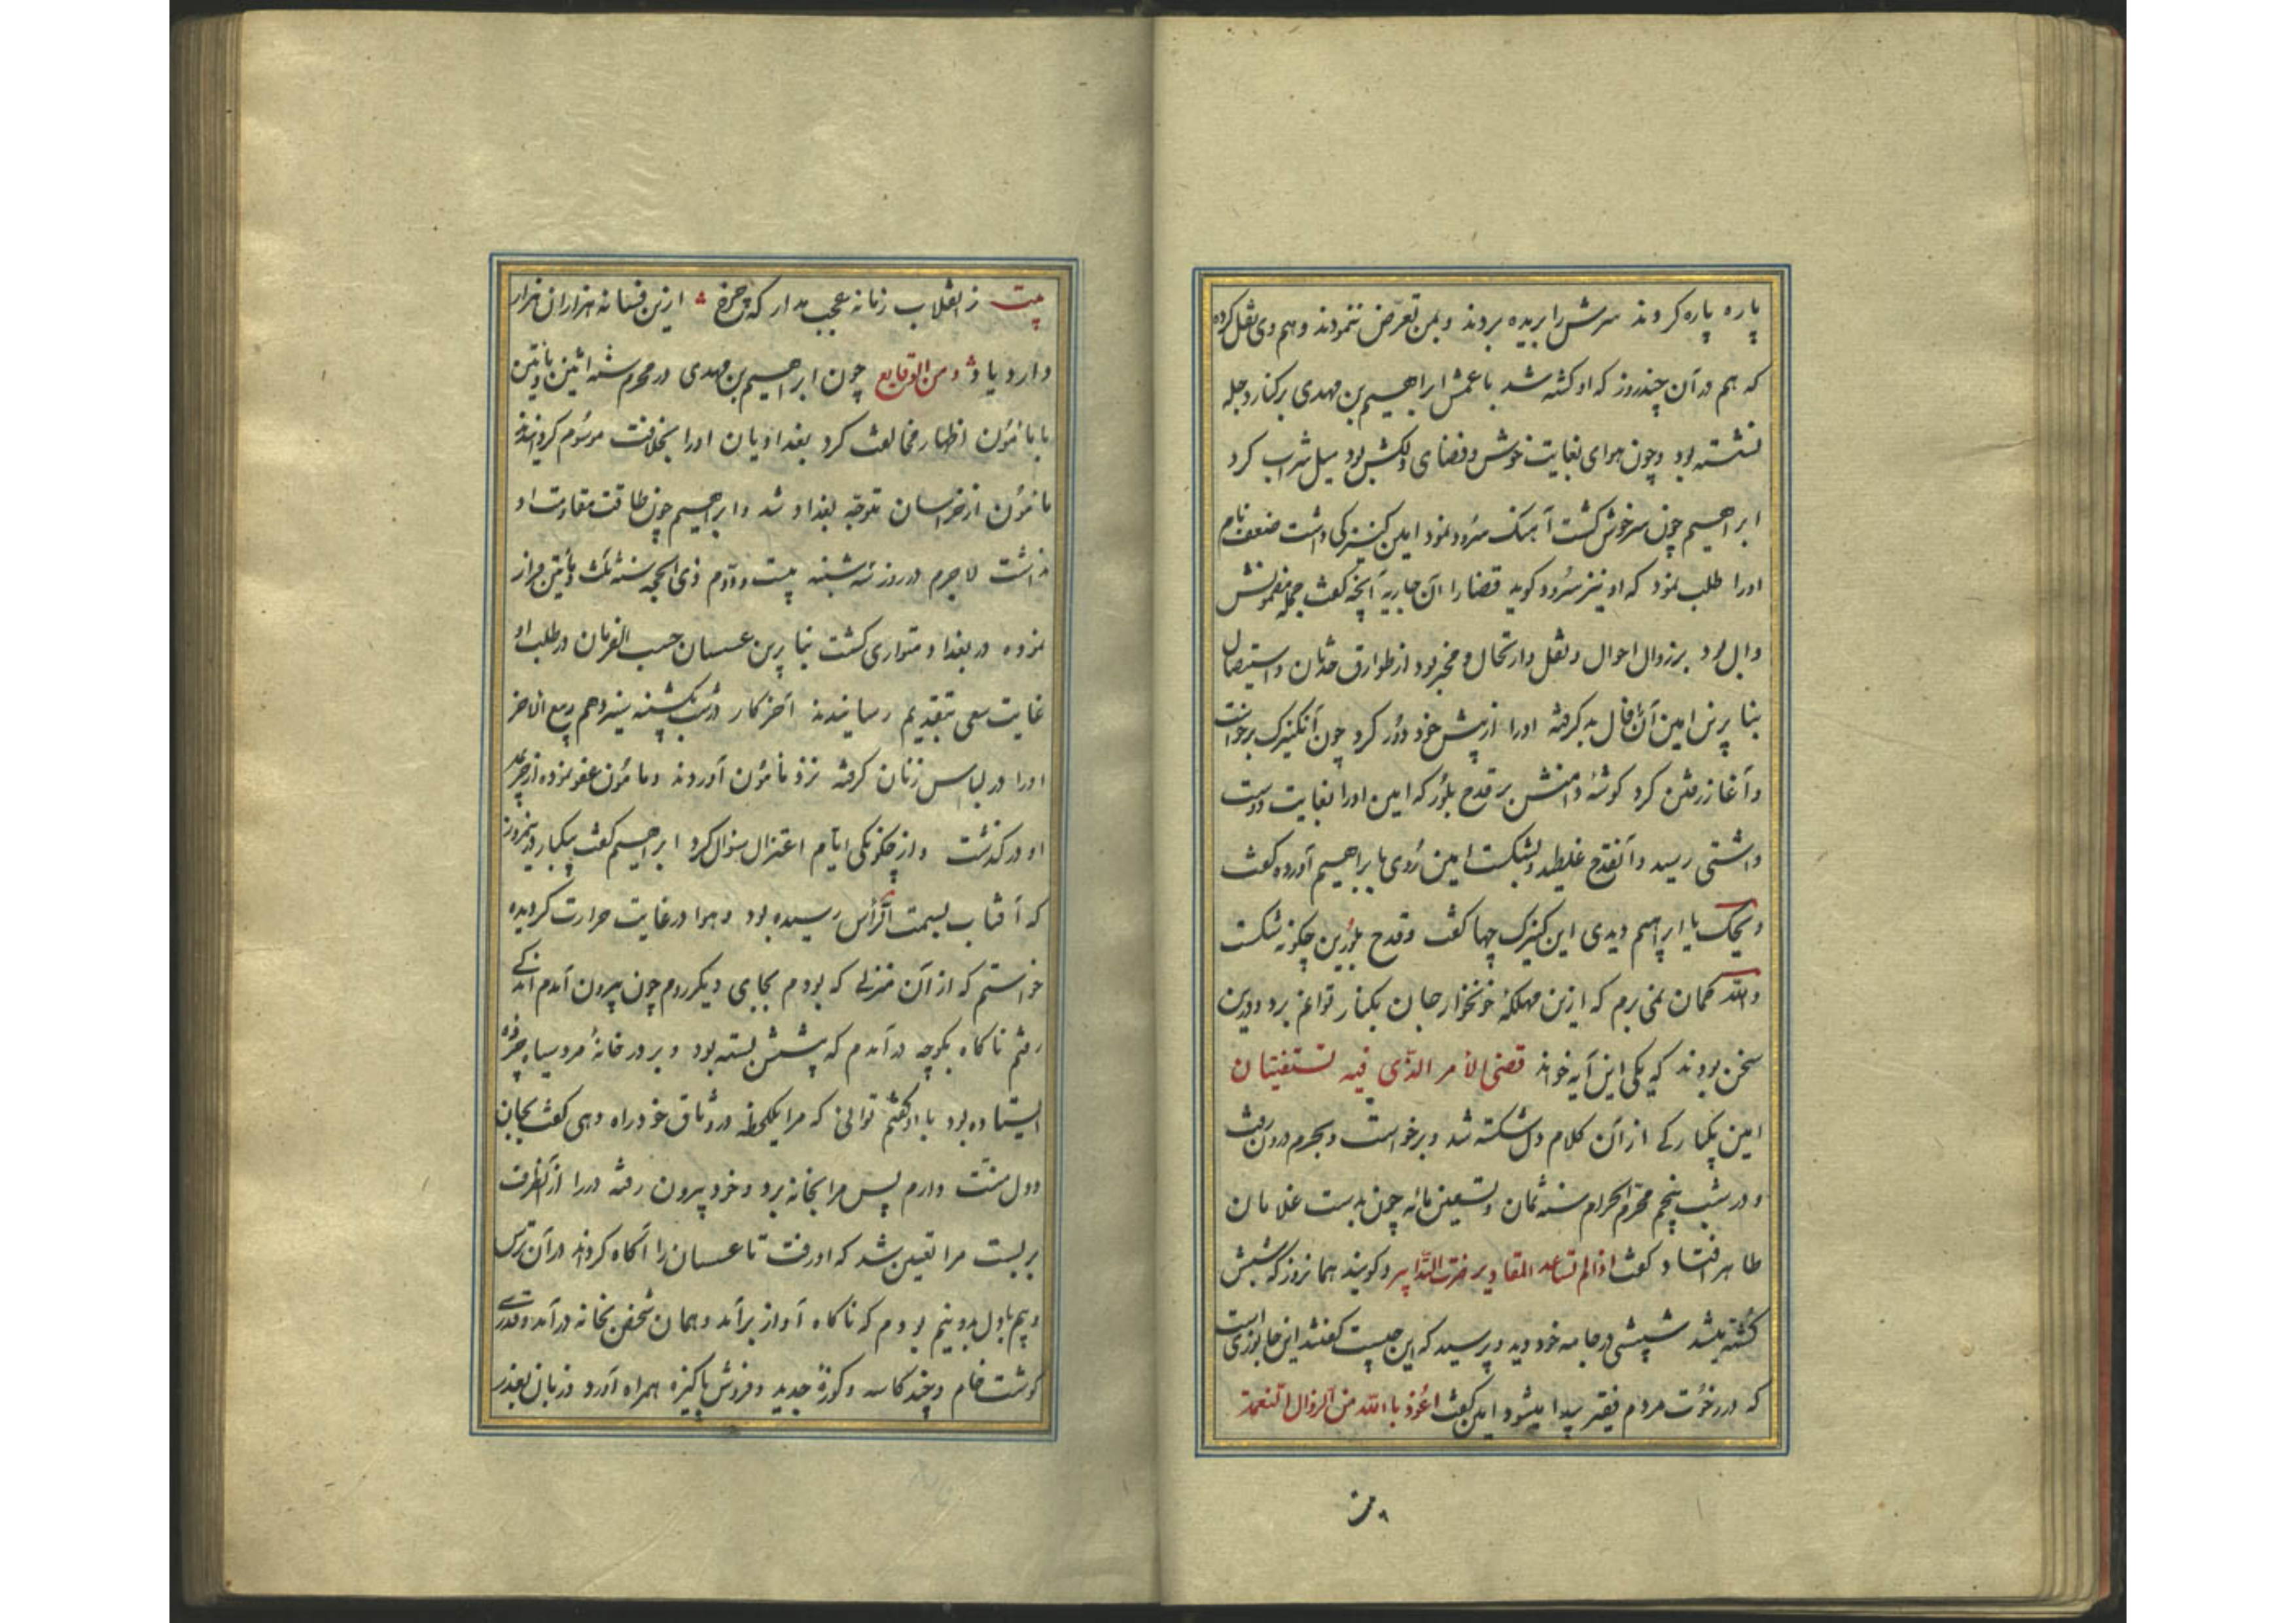 پاره پاره کردند سرش را بریده بردند و بمن تعرّض ننمودند و هم وی نقل کرده
که هم در آن چند روز که او کشته شد با عمش ابراهیم بن مهدی بر کنار دجله
نشسته بود و چون هوای بغایت خوش و فضای دلکش بود میل شراب کرد
ابراهیم چون سرخوش کشت آهنک سرود نمود امین کنیزکی داشت ضعف نام
اورا طلب نمود که او نیز سرود کوید قضا را آن جاریه آنچه کفت جمله مضمونش
دال بود بر زوال احوال و نقل و ارتحال و مخبر بود از طوارق حدثان و استیصال
بنا برین امین آن فال بد کرفته اورا از پیش خود دور کرد چون آنکنیزک برخواست
و آغاز رفتن کرد کوشهٔ دامنش بر قدح بلور که امین اورا بغایت دوست
داشتی رسید و آنقدح غلطید و بشکست امین روی بابراهیم آورده کفت
ویحک یا ابراهیم دیدی این کنیزک چها کفت و قدح بلورین چکونه شکست
والله کمان نمی برم که ازین مهلکهٔ خونخوار جان بکنار توانم برد و درین
سخن بودند که یکی این آیه خواند قضی الامر الذی فیه تستفتیان
امین یکبارکی از آن کلام دل شکسته شد و برخواست و بحرم درون رفت
و در شب پنجم محرم الحرام سنه ثمان و تسعین مائه چون بدست غلامان
طاهر افتاد کفت اذا لم تساعد المقادیر ضرت التدابیر و کویند همانروز که شبش
کشته میشد شپشی در جامه خود دید و پرسید که این چیست کفتند این جانوری است
که در رخوت مردم فقیر پیدا میشود امین کفت اعوذ بالله من الزوال النعمة
بیت
بیت ز انقلاب زمانه عجب مدار که چرخ ازین فسانه هزاران هزار
دارد یاد و من الوقایع چون ابراهیم بن مهدی در محرم سنه اثنین و مأتین
با مأمون اظهار مخالفت کرد بغدادیان اورا بخلافت موسوم کردانیدند
مأمون از خراسان متوجه بغداد شد و ابراهیم چون طاقت مقاومت او
نداشت لاجرم در روز سه شنبه بیست و دوم ذی الحجه سنه ثلث و مأتین فرار
نموده در بغداد متواری کشت بنا برین عسسان حسب الفرمان در طلب او
غایت سعی بتقدیم رسانیدند آخر کار در شب یکشنبه سیزدهم ربیع الاخر
اورا در لباس زنان کرفته نزد مأمون آوردند و مأمون عفو نموده از جریمهٔ
او درکذشت و از چکونکی ایام اعتزال سؤال کرد ابراهیم کفت یکبار در نیمروز
که آفتاب بسمت الرأس رسیده بود و هوا در غایت حرارت کردیده
خواستم که از آن منزلی که بودم بجای دیکر روم چون بیرون آمدم اندکی
رفتم ناکاه بکوچه در آمدم که پیشش بسته بود و بر در خانهٔ مرد سیاه چرده
ایستاده بود با او کفتم توانی که مرا یکلحظه در وثاق خود راه دهی کفت بجان
و دل منت دارم پس مرا بخانه برد و خود بیرون رفته در را از آنطرف
بر بست مرا یقین شد که او رفت تا عسسان را آکاه کرداند در آن ترس
و بیم با دل بدو نیم بودم که ناکاه آواز برآمد و همان شخص بخانه درآمد و قدری
کوشت خام و چند کاسه و کوزهٔ جدید و فروش پاکیزه همراه آورد و زبان بعذر